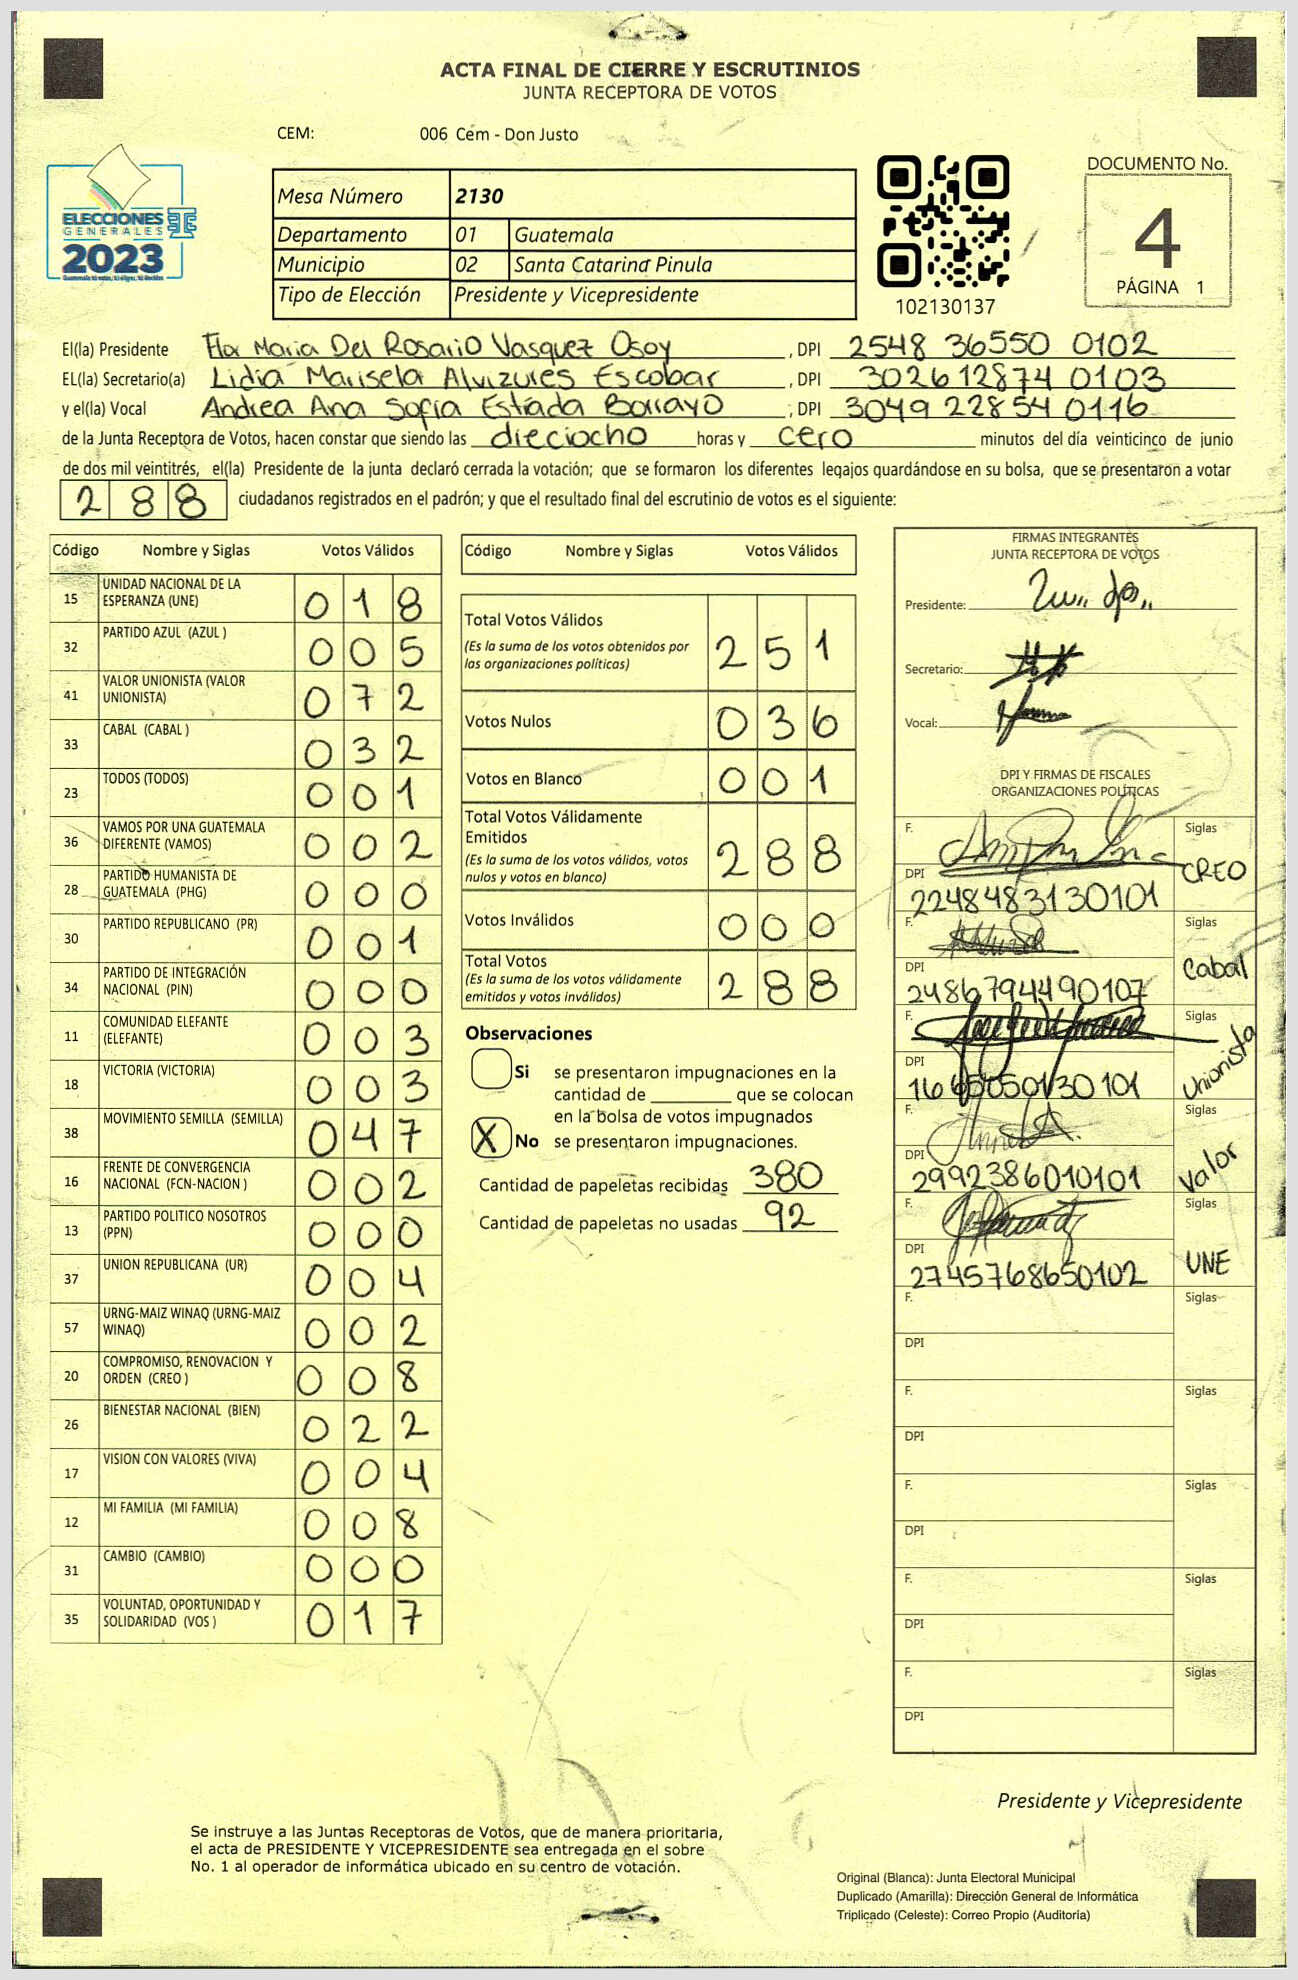 ACTA FINAL DE CIERRE Y ESCRUTINIOS
JUNTA RECEPTORA DE VOTOS
CEM: 006 Cem - Don Justo
ELECCIONES
GENERALES
2023
Mesa Número 2130
Departamento 01 Guatemala
Municipio 02 Santa Catarina Pinula
Tipo de Elección Presidente y Vicepresidente
102130137
DOCUMENTO No.
4
PÁGINA 1
El(la) Presidente Flor Maria Del Rosario Vasquez Osoy , DPI 2548 36550 0102
EL(la) Secretario(a) Lidia Marisela Alvizures Escobar , DPI 302612874 0103
y el(la) Vocal Andrea Ana Sofia Estrada Borrayo , DPI 3049 22854 0116
de la Junta Receptora de Votos, hacen constar que siendo las dieciocho horas y cero minutos del día veinticinco de junio
de dos mil veintitrés, el(la) Presidente de la junta declaró cerrada la votación; que se formaron los diferentes legajos guardándose en su bolsa, que se presentaron a votar
288 ciudadanos registrados en el padrón; y que el resultado final del escrutinio de votos es el siguiente:
Código Nombre y Siglas Votos Válidos
15 UNIDAD NACIONAL DE LA ESPERANZA (UNE) 018
32 PARTIDO AZUL (AZUL ) 005
41 VALOR UNIONISTA (VALOR UNIONISTA) 072
33 CABAL (CABAL ) 032
23 TODOS (TODOS) 001
36 VAMOS POR UNA GUATEMALA DIFERENTE (VAMOS) 002
28 PARTIDO HUMANISTA DE GUATEMALA (PHG) 000
30 PARTIDO REPUBLICANO (PR) 001
34 PARTIDO DE INTEGRACIÓN NACIONAL (PIN) 000
11 COMUNIDAD ELEFANTE (ELEFANTE) 003
18 VICTORIA (VICTORIA) 003
38 MOVIMIENTO SEMILLA (SEMILLA) 047
16 FRENTE DE CONVERGENCIA NACIONAL (FCN-NACION ) 002
13 PARTIDO POLITICO NOSOTROS (PPN) 000
37 UNION REPUBLICANA (UR) 004
57 URNG-MAIZ WINAQ (URNG-MAIZ WINAQ) 002
20 COMPROMISO, RENOVACION Y ORDEN (CREO ) 008
26 BIENESTAR NACIONAL (BIEN) 022
17 VISION CON VALORES (VIVA) 004
12 MI FAMILIA (MI FAMILIA) 008
31 CAMBIO (CAMBIO) 000
35 VOLUNTAD, OPORTUNIDAD Y SOLIDARIDAD (VOS ) 017
Código Nombre y Siglas Votos Válidos
Total Votos Válidos 251
(Es la suma de los votos obtenidos por
las organizaciones políticas)
Votos Nulos 036
Votos en Blanco 001
Total Votos Válidamente
Emitidos 288
(Es la suma de los votos válidos, votos
nulos y votos en blanco)
Votos Inválidos 000
Total Votos 288
(Es la suma de los votos válidamente
emitidos y votos inválidos)
Observaciones
Si se presentaron impugnaciones en la
cantidad de ________ que se colocan
en la bolsa de votos impugnados
X No se presentaron impugnaciones.
Cantidad de papeletas recibidas 380
Cantidad de papeletas no usadas 92
FIRMAS INTEGRANTES
JUNTA RECEPTORA DE VOTOS
Presidente:
Secretario:
Vocal:
DPI Y FIRMAS DE FISCALES
ORGANIZACIONES POLÍTICAS
F. Siglas
DPI 2248483130101 CREO
F. Siglas
DPI 2486794490107 Cabal
F. Siglas
DPI Unionista
F. Siglas
DPI 2992386010101 Valor
F. Siglas
DPI 2745768650102 UNE
F. Siglas
DPI
F. Siglas
DPI
F. Siglas
DPI
F. Siglas
DPI
F. Siglas
DPI
Presidente y Vicepresidente
Se instruye a las Juntas Receptoras de Votos, que de manera prioritaria,
el acta de PRESIDENTE Y VICEPRESIDENTE sea entregada en el sobre
No. 1 al operador de informática ubicado en su centro de votación.
Original (Blanca): Junta Electoral Municipal
Duplicado (Amarilla): Dirección General de Informática
Triplicado (Celeste): Correo Propio (Auditoría)